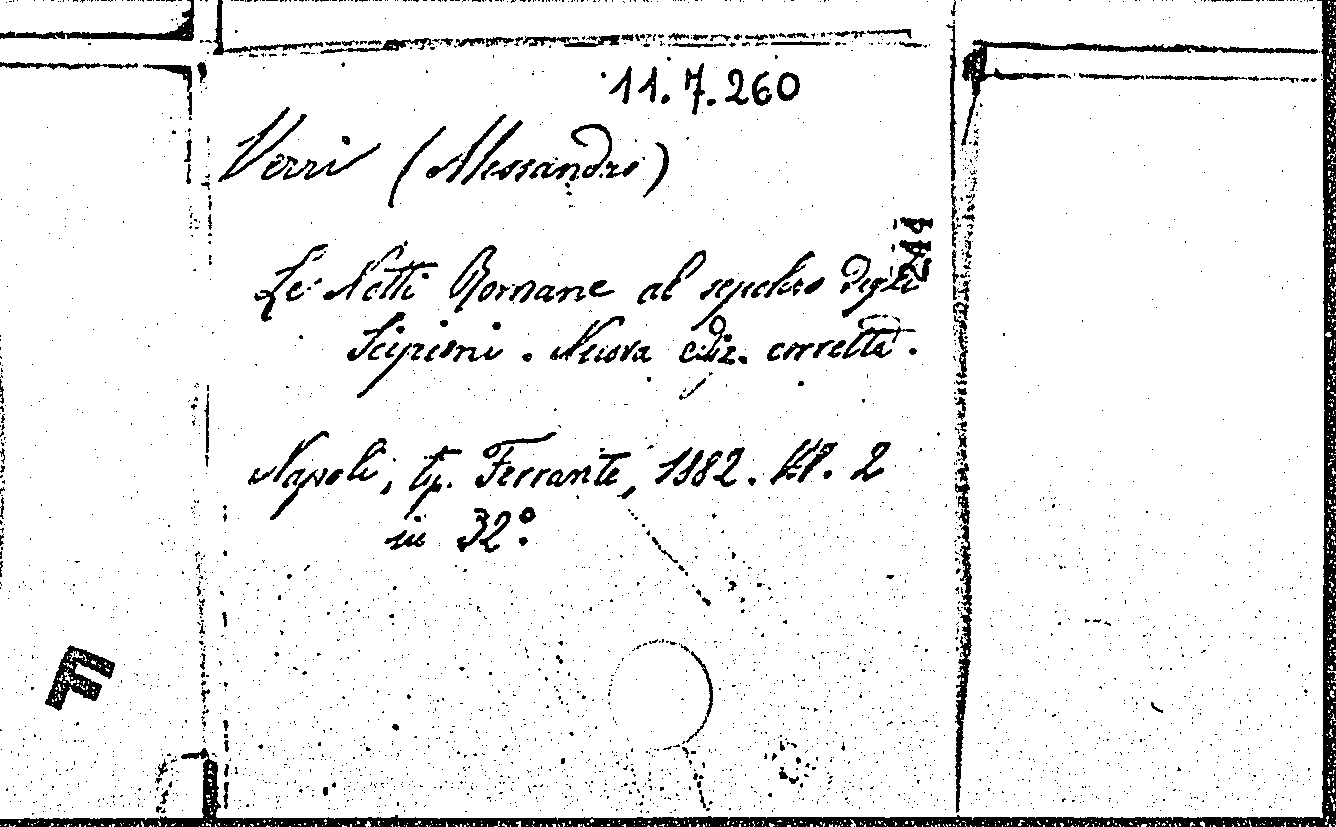 11.7.260
Verri (Alessandro)
244
Le Notti Romane al sepolcro degli
Scipioni. Nuova ediz. corretta.
Napoli, tip. Ferrante, 1882. Vol. 2
in 32°.
F